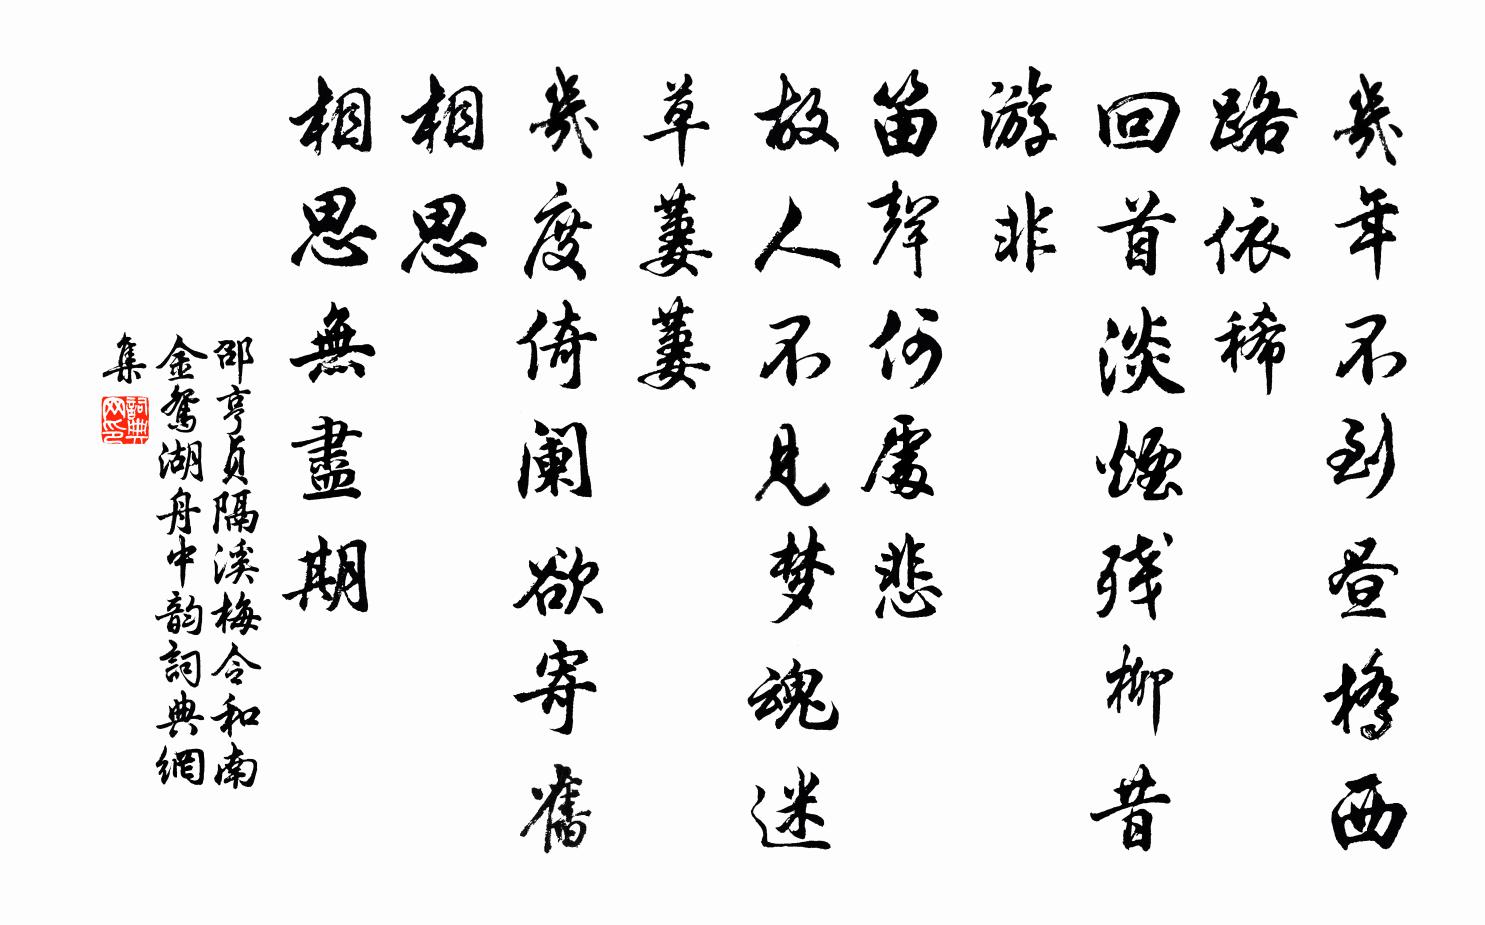 幾年不到昼橋西
路依稀
回首淡煙残柳昔
游非
笛聲何處悲
故人不見梦魂迷
草萋萋
幾度倚闌欲寄舊
相思
相思無盡期
邵亨貞隔溪梅令和南
金鴛湖舟中韵詞典網
集
詞典
网印